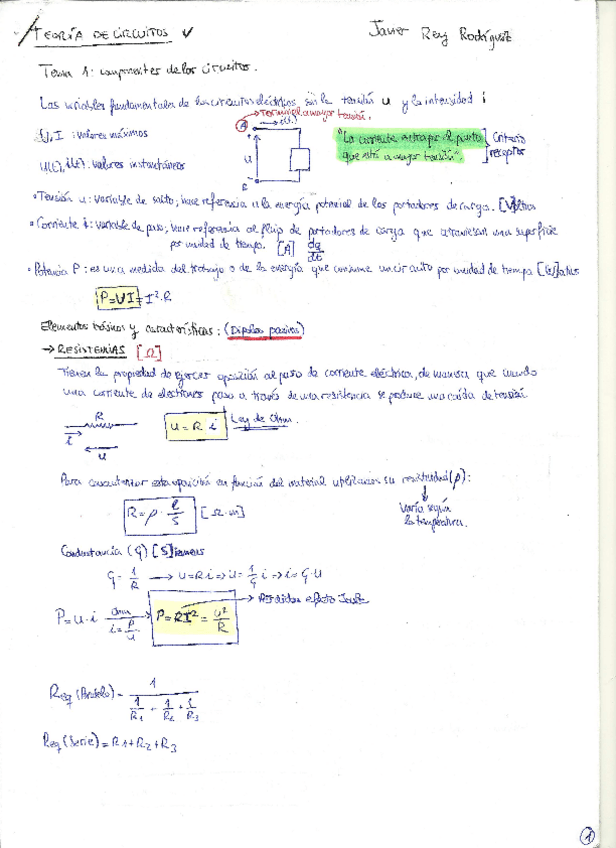 TEORÍA DE CIRCUITOS
Javier Rey Rodríguez
Tema 1: componentes de los circuitos.
Las variables fundamentales de los circuitos eléctricos son la tensión u y la intensidad i
Terminal a mayor tensión.
A
i(t)
U, I : valores máximos
u(t), i(t): valores instantáneos
u
B
"La corriente entra por el punto
que está a mayor tensión".
Criterio
receptor
• Tensión u: variable de salto, hace referencia a la energía potencial de los portadores de carga. [V]oltios
• Corriente i: variable de paso, hace referencia al flujo de portadores de carga que atraviesan una superficie
por unidad de tiempo. [A] dq/dt
• Potencia P: es una medida del trabajo o de la energía que consume un circuito por unidad de tiempo [W]atios
P=VI=I²·R
Elementos básicos y características: (Dipolos pasivos)
→ RESISTENCIAS [Ω]
Tienen la propiedad de ejercer oposición al paso de corriente eléctrica, de manera que cuando
una corriente de electrones pasa a través de una resistencia se produce una caída de tensión
R
i
u
u = R i
Ley de Ohm.
Para caracterizar esta oposición en función del material utilizamos su resistividad (ρ):
varía según
la temperatura.
R = ρ · l/S [Ω·m]
Conductancia (G) [S]iemens
G = 1/R → u=Ri => u = 1/G i => i = G·u
P = u·i
ohm
i = P/u
P = RI² = u²/R
→ Pérdidas efecto Joule
Req (Paralelo) = 1 / (1/R1 + 1/R2 + 1/R3)
Req (Serie) = R1+R2+R3
1